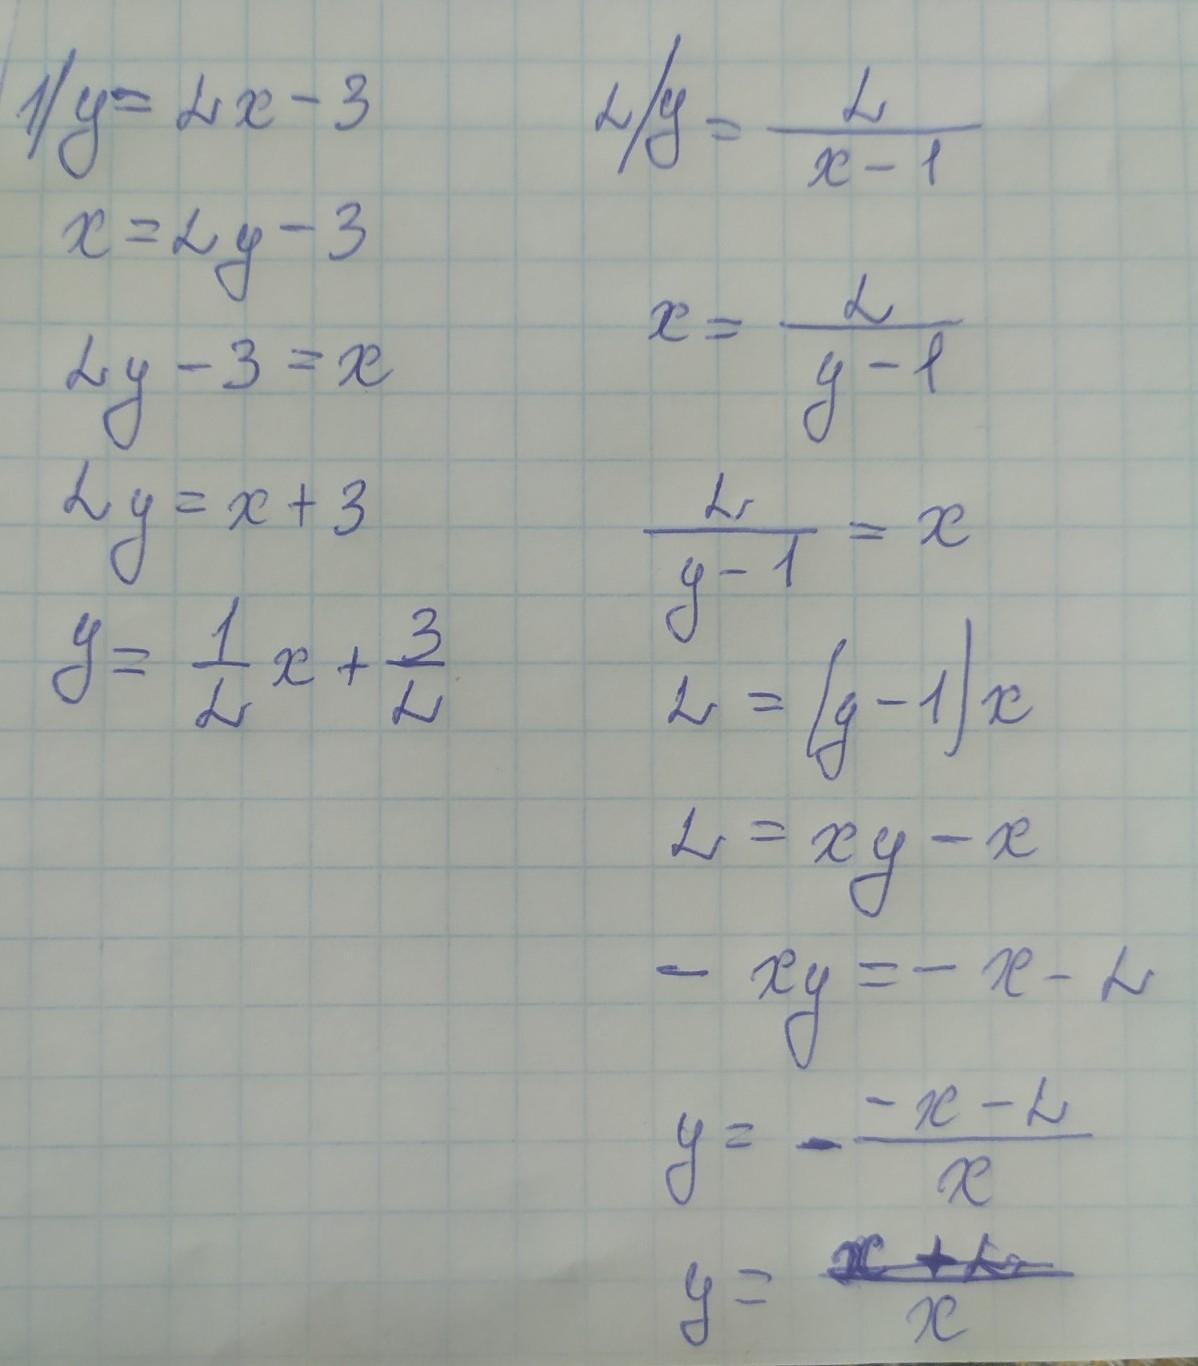 1/ y = 2x - 3
x = 2y - 3
2y - 3 = x
2y = x + 3
y = 1/2 x + 3/2
2/ y = 2/(x - 1)
x = 2/(y - 1)
2/(y - 1) = x
2 = (y - 1)x
2 = xy - x
- xy = - x - 2
y = - (-x - 2)/x
y = (x + 2)/x